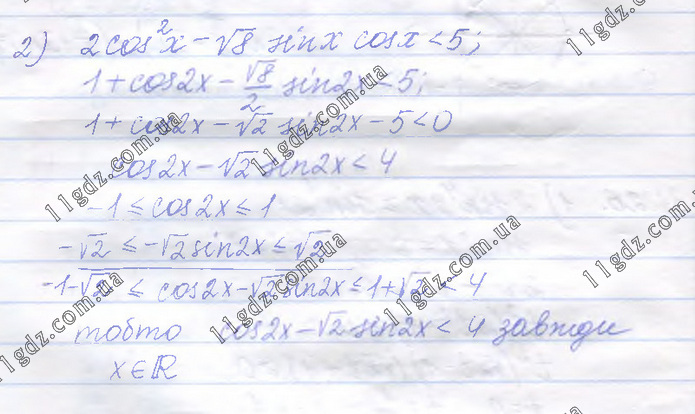 2) 2cos²x - √8 sinx cosx < 5;
1 + cos2x - √8/2 sin2x < 5;
1 + cos2x - √2 sin2x - 5 < 0
cos2x - √2 sin2x < 4
-1 ≤ cos2x ≤ 1
-√2 ≤ -√2 sin2x ≤ √2
-1-√2 ≤ cos2x - √2 sin2x ≤ 1+√2 < 4
тобто cos2x - √2 sin2x < 4 завжди
x∈ℝ
11gdz.com.ua
11gdz.com.ua
11gdz.com.ua
11gdz.com.ua
11gdz.com.ua
11gdz.com.ua
11gdz.com.ua
11gdz.com.ua